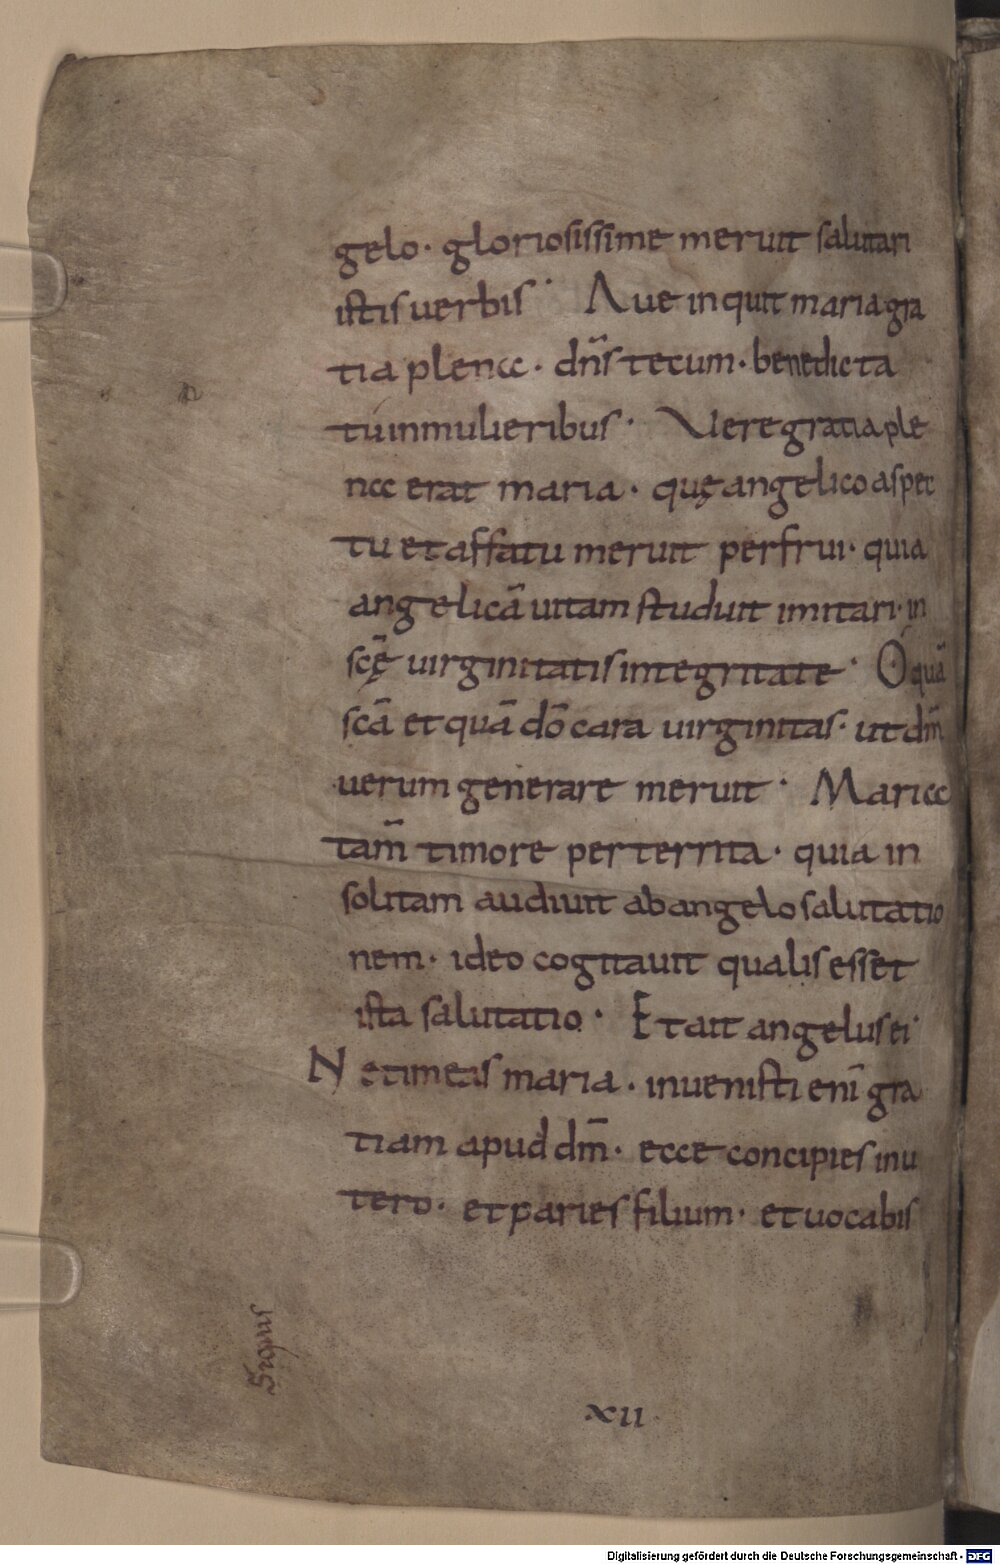 gelo· gloriosissime meruit salutari
istis uerbis· Aue inquit maria gra
tia plena· dn̄s tecum· benedicta
tu in mulieribus· Uere gratia ple
na erat maria· quę angelico aspec
tu et affatu meruit perfrui· quia
angelicā uitam studuit imitari· in
scę̄ uirginitatis integritate· O quā
scā et quā dō cara uirginitas· ut dm̄
uerum generare meruit· Maria
tam̄ timore perterrita· quia in
solitam audiuit ab angelo salutatio
nem· ideo cogitauit qualis esset
ista salutatio· Et ait angelus ei·
Ne timeas maria· inuenisti enī gra
tiam apud dm̄· ecce concipies in u
tero· et paries filium· et uocabis
xii·
Digitalisierung gefördert durch die Deutsche Forschungsgemeinschaft - DFG